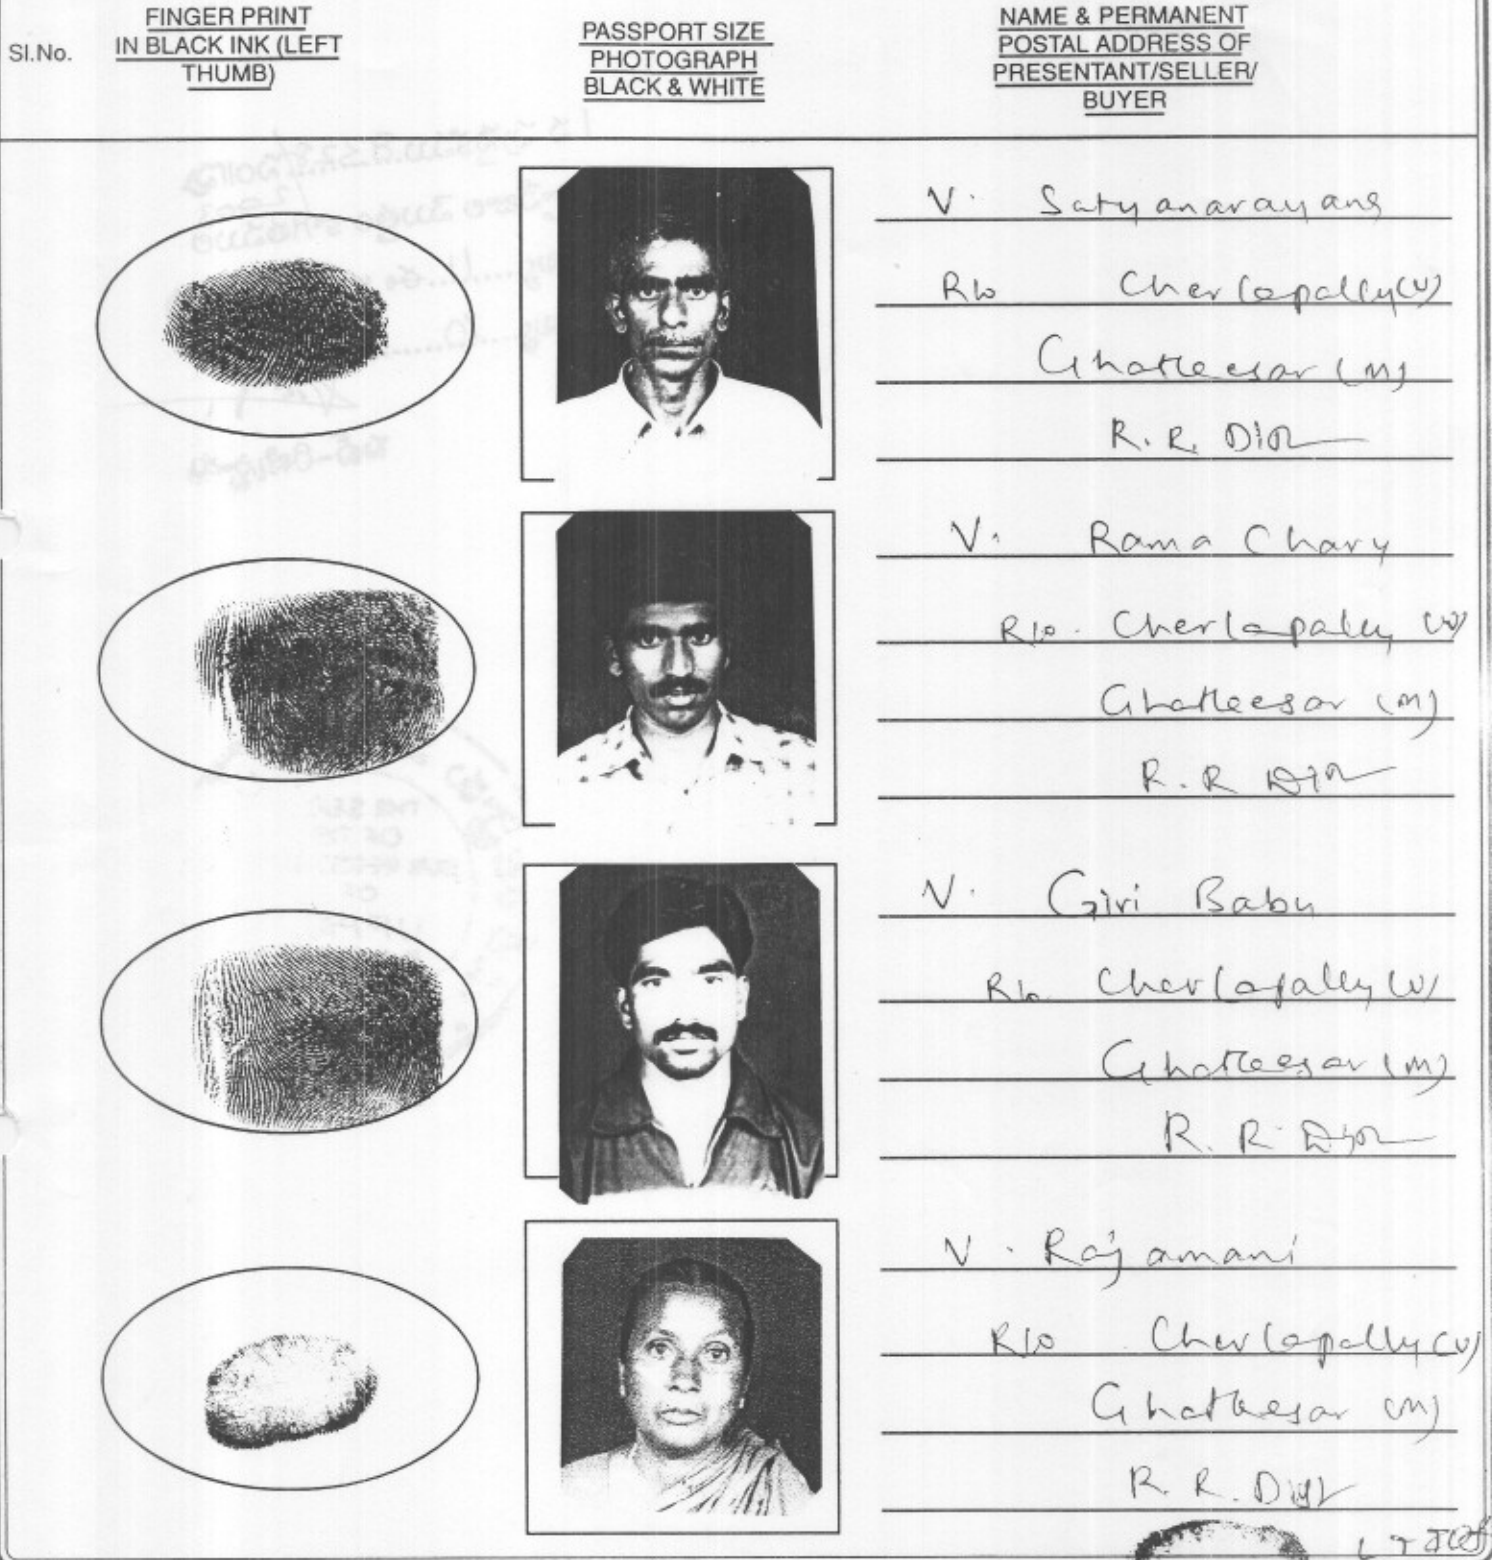 Sl.No.
FINGER PRINT
IN BLACK INK (LEFT
THUMB)
PASSPORT SIZE
PHOTOGRAPH
BLACK & WHITE
NAME & PERMANENT
POSTAL ADDRESS OF
PRESENTANT/SELLER/
BUYER
V. Satyanarayana
R/o Cherlapally (V)
Ghatkesar (M)
R. R. Dist
V. Rama Chary
R/o. Cherlapally (V)
Ghatkesar (M)
R. R Dist
V. Giri Babu
R/o Cherlapally (V)
Ghatkesar (M)
R. R. Dist
V. Rajamani
R/o Cherlapally (V)
Ghatkesar (M)
R. R. Dist